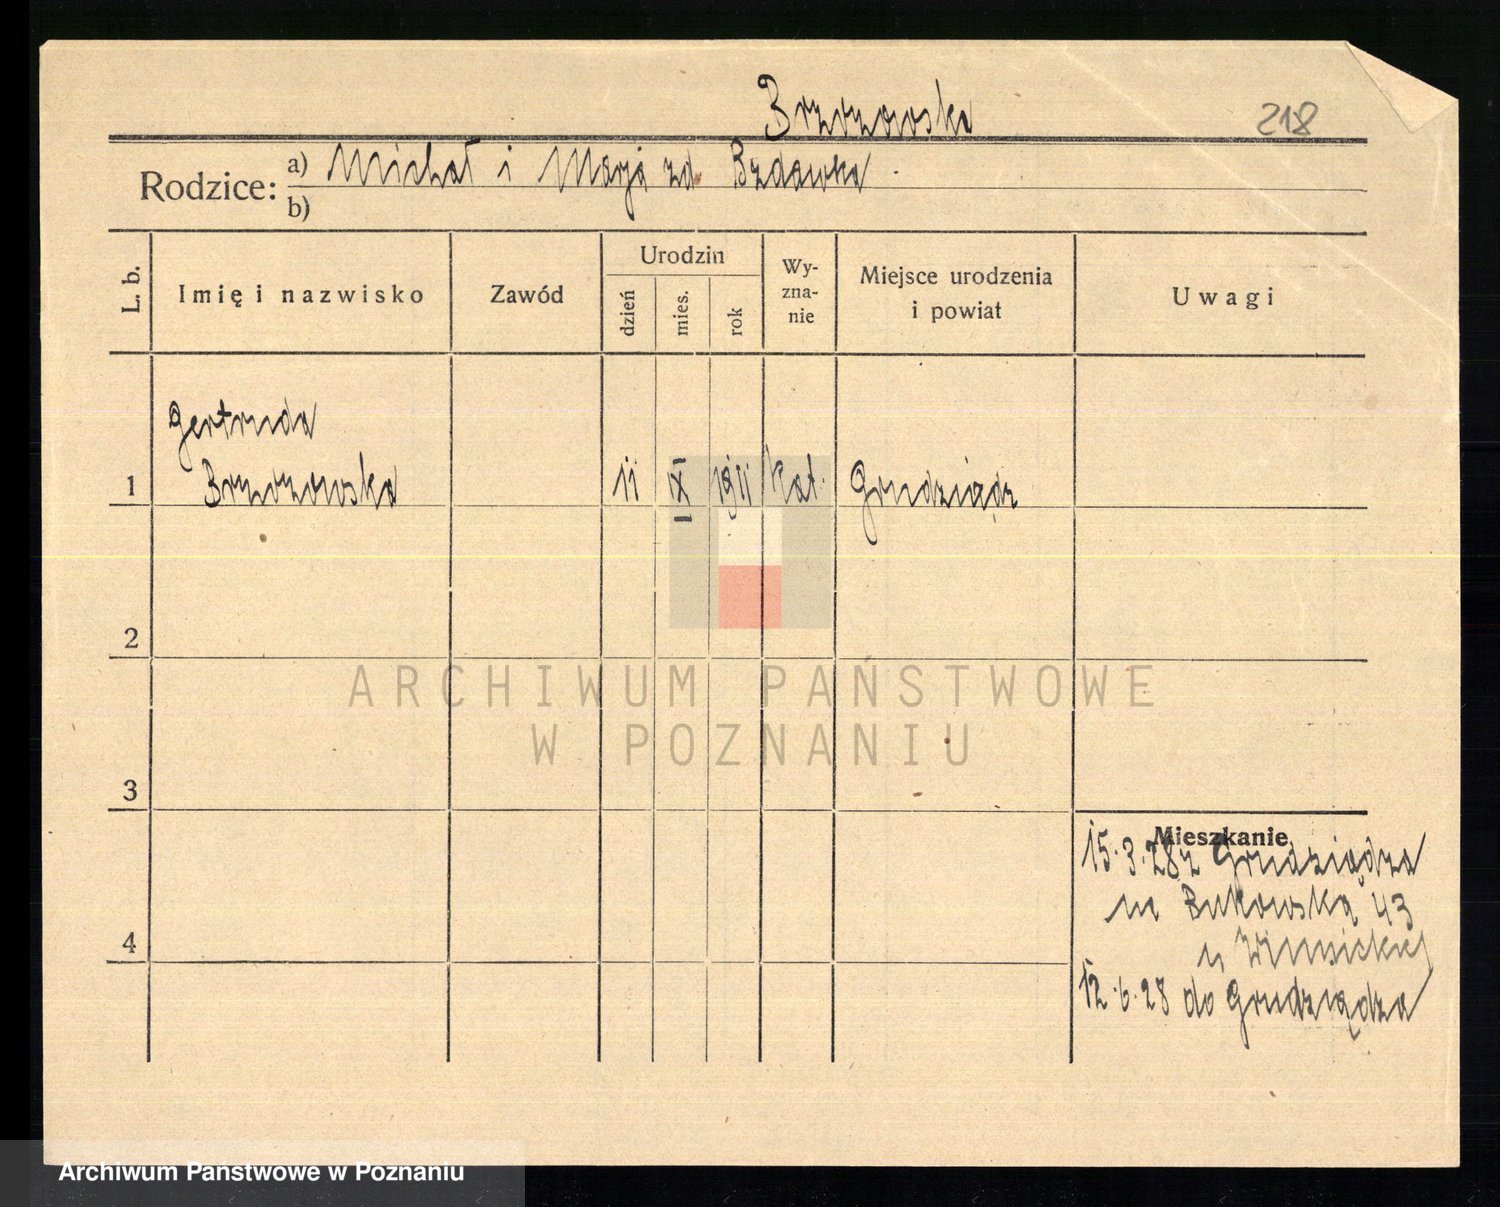 Brzozowska
218
Rodzice: a) Michał i Marja zd. Bzdawka
b)
L. b.
Imię i nazwisko
Zawód
Urodzin
dzień
mies.
rok
Wy-
zna-
nie
Miejsce urodzenia
i powiat
Uwagi
Gertruda
1 Brzozowska 11 IX 1911 kat. Grudziądz
2
ARCHIWUM PAŃSTWOWE
W POZNANIU
3
Mieszkanie
15.3.28 z Grudziądza
na Bukowską 43
u
4
12.6.28 do Grudziądza
Archiwum Państwowe w Poznaniu